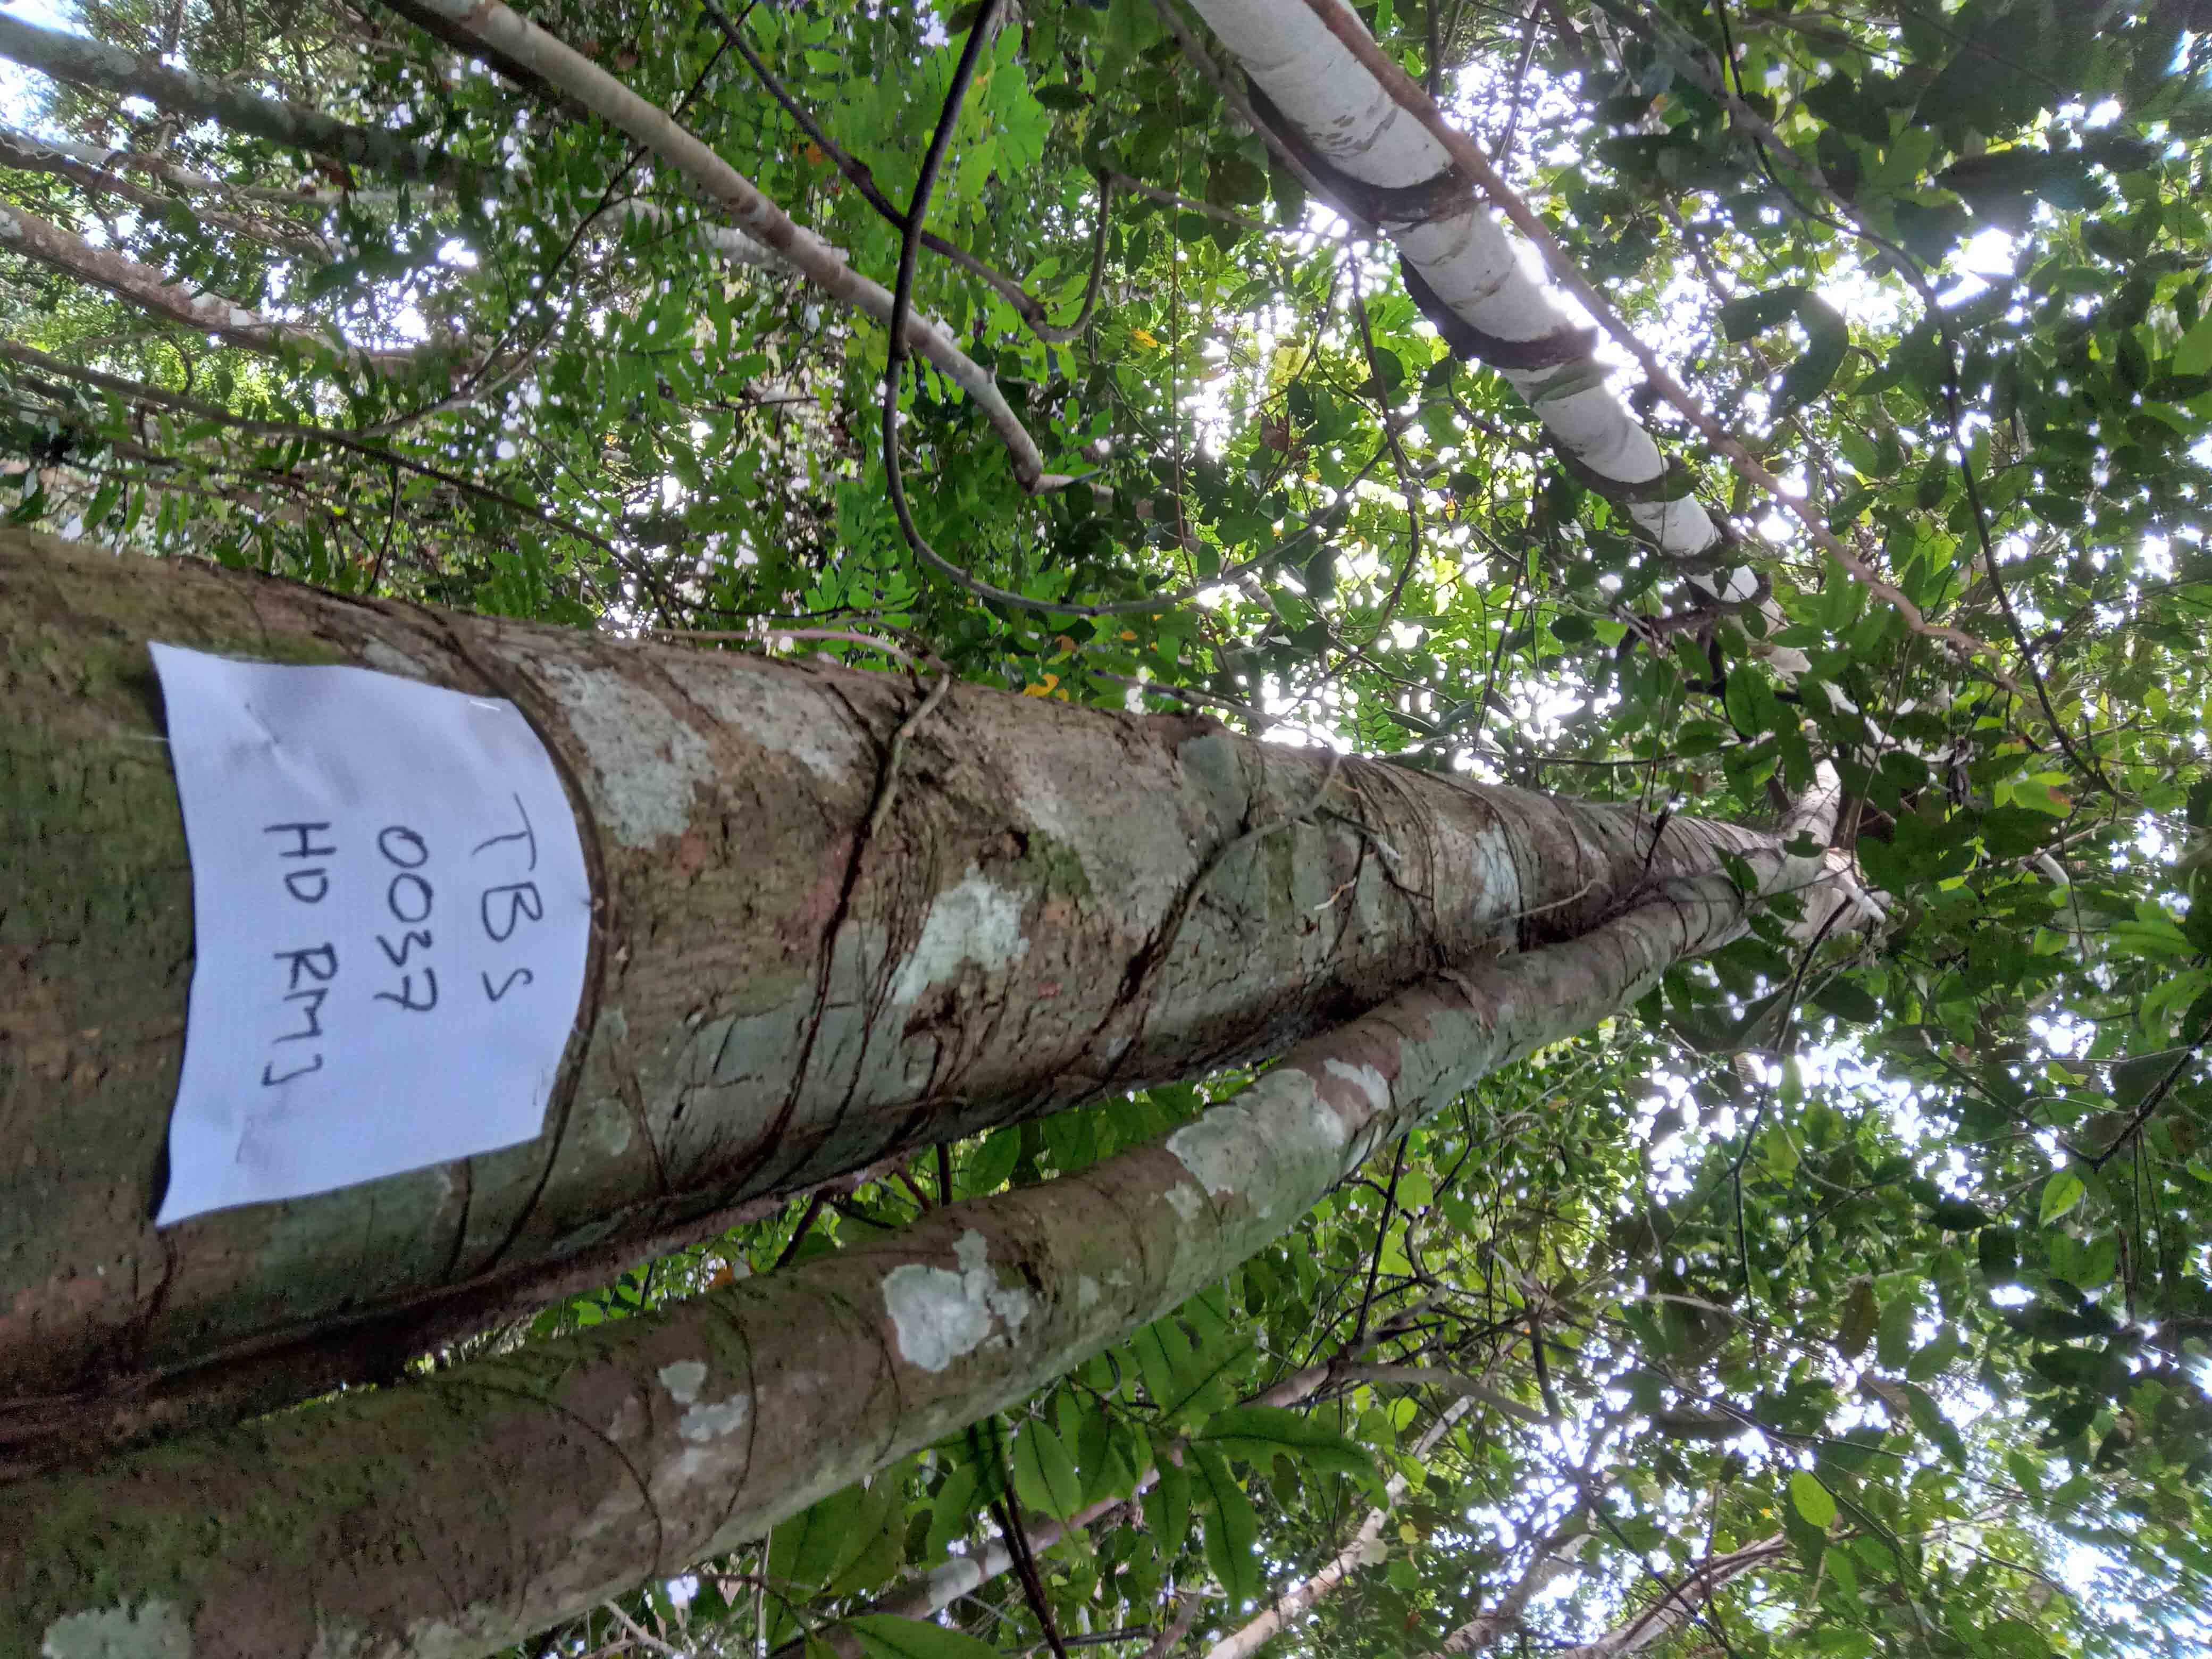 TBS
0037
HD RMJ